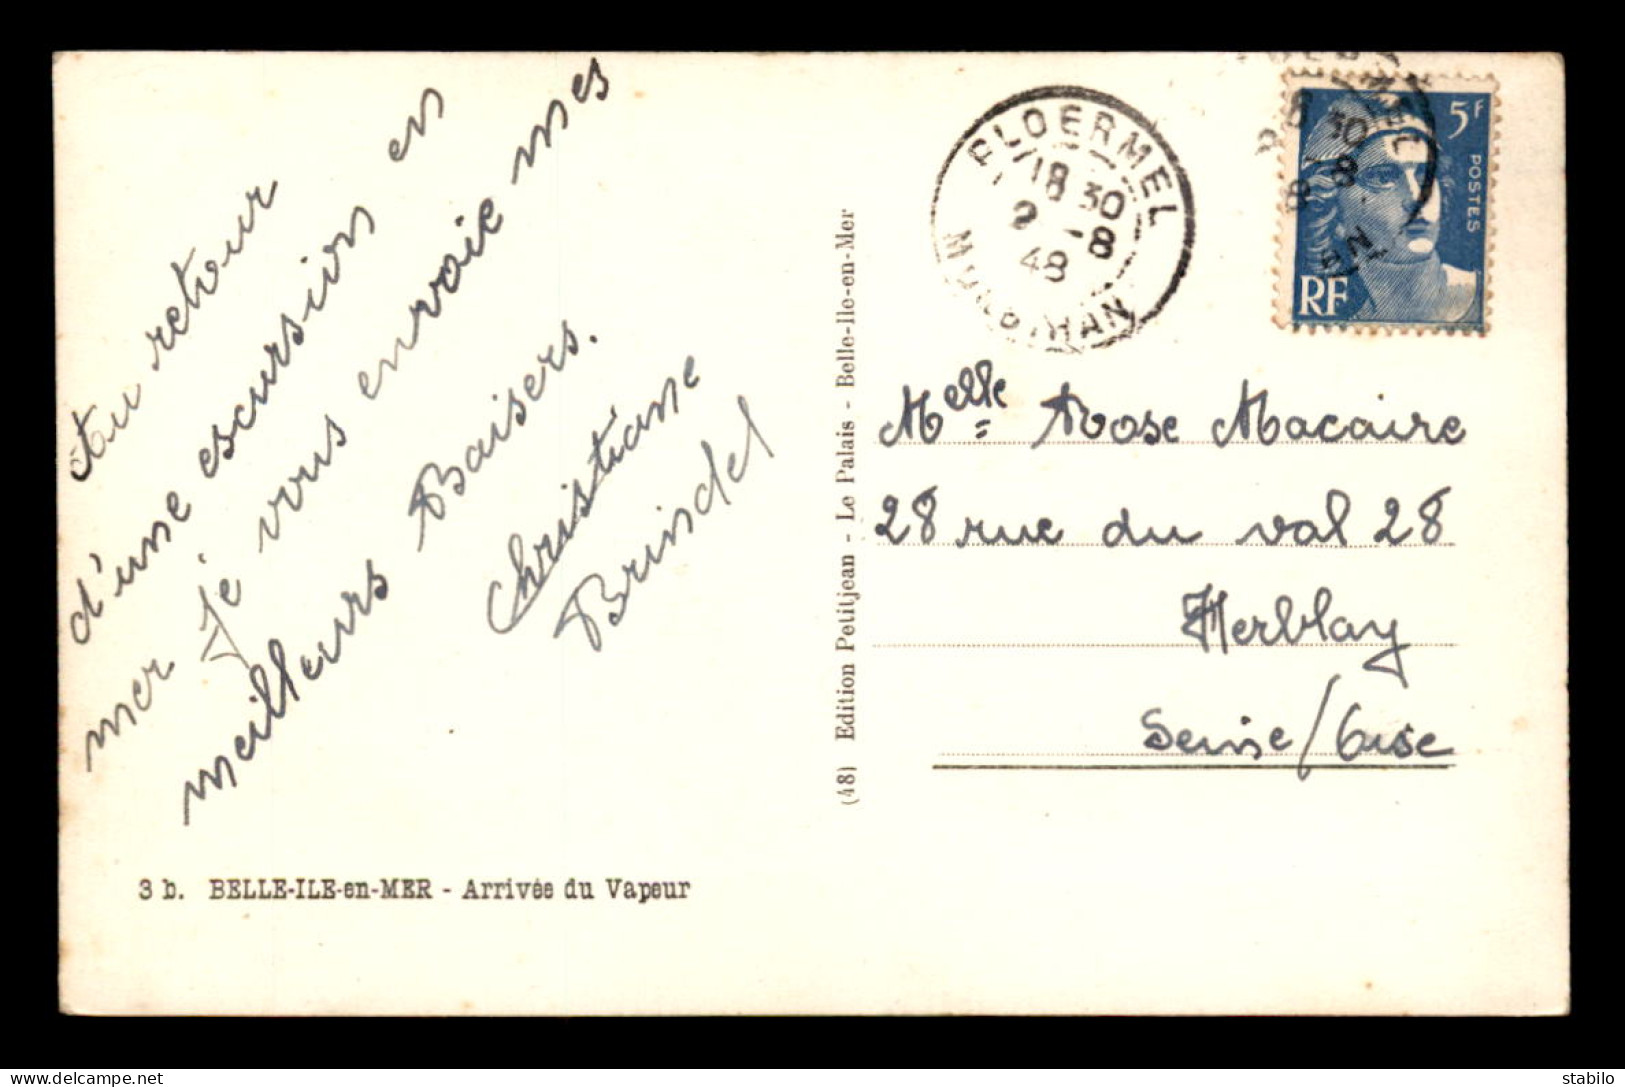 Au retour
d'une escursion en
mer Je vous envoie mes
meilleurs Baisers.
Christiane
Brindel
3 b. BELLE-ILE-en-MER - Arrivée du Vapeur
(48) Edition Petitjean - Le Palais - Belle-Ile-en-Mer
PLOERMEL
18 30
2 -8
48
MORBIHAN
5F
POSTES
RF
Melle Rose Macaire
28 rue du val 28
Herblay
Seine/Oise
stabilo